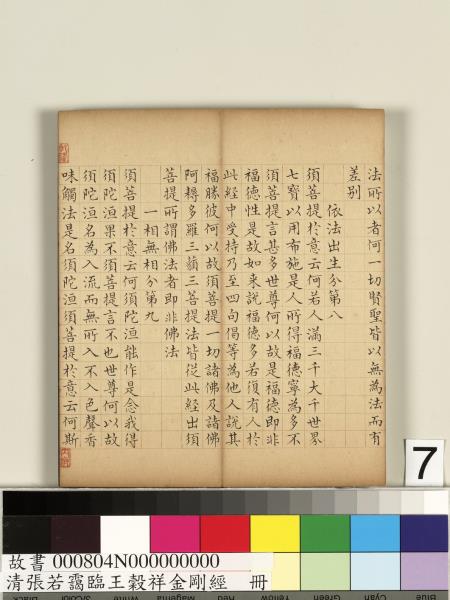 法所以者何一切賢聖皆以無為法而有
差別
依法出生分第八
須菩提於意云何若人滿三千大千世界
七寶以用布施是人所得福德寧為多不
須菩提言甚多世尊何以故是福德即非
福德性是故如來說福德多若復有人於
此經中受持乃至四句偈等為他人說其
福勝彼何以故須菩提一切諸佛及諸佛
阿耨多羅三藐三菩提法皆從此經出須
菩提所謂佛法者即非佛法
一相無相分第九
須菩提於意云何須陀洹能作是念我得
須陀洹果不須菩提言不也世尊何以故
須陀洹名為入流而無所入不入色聲香
味觸法是名須陀洹須菩提於意云何斯
7
故書 000804N000000000
清張若靄臨王穀祥金剛經 冊
Black 3/Color White Magenta Red Yellow Green Cyan Blue